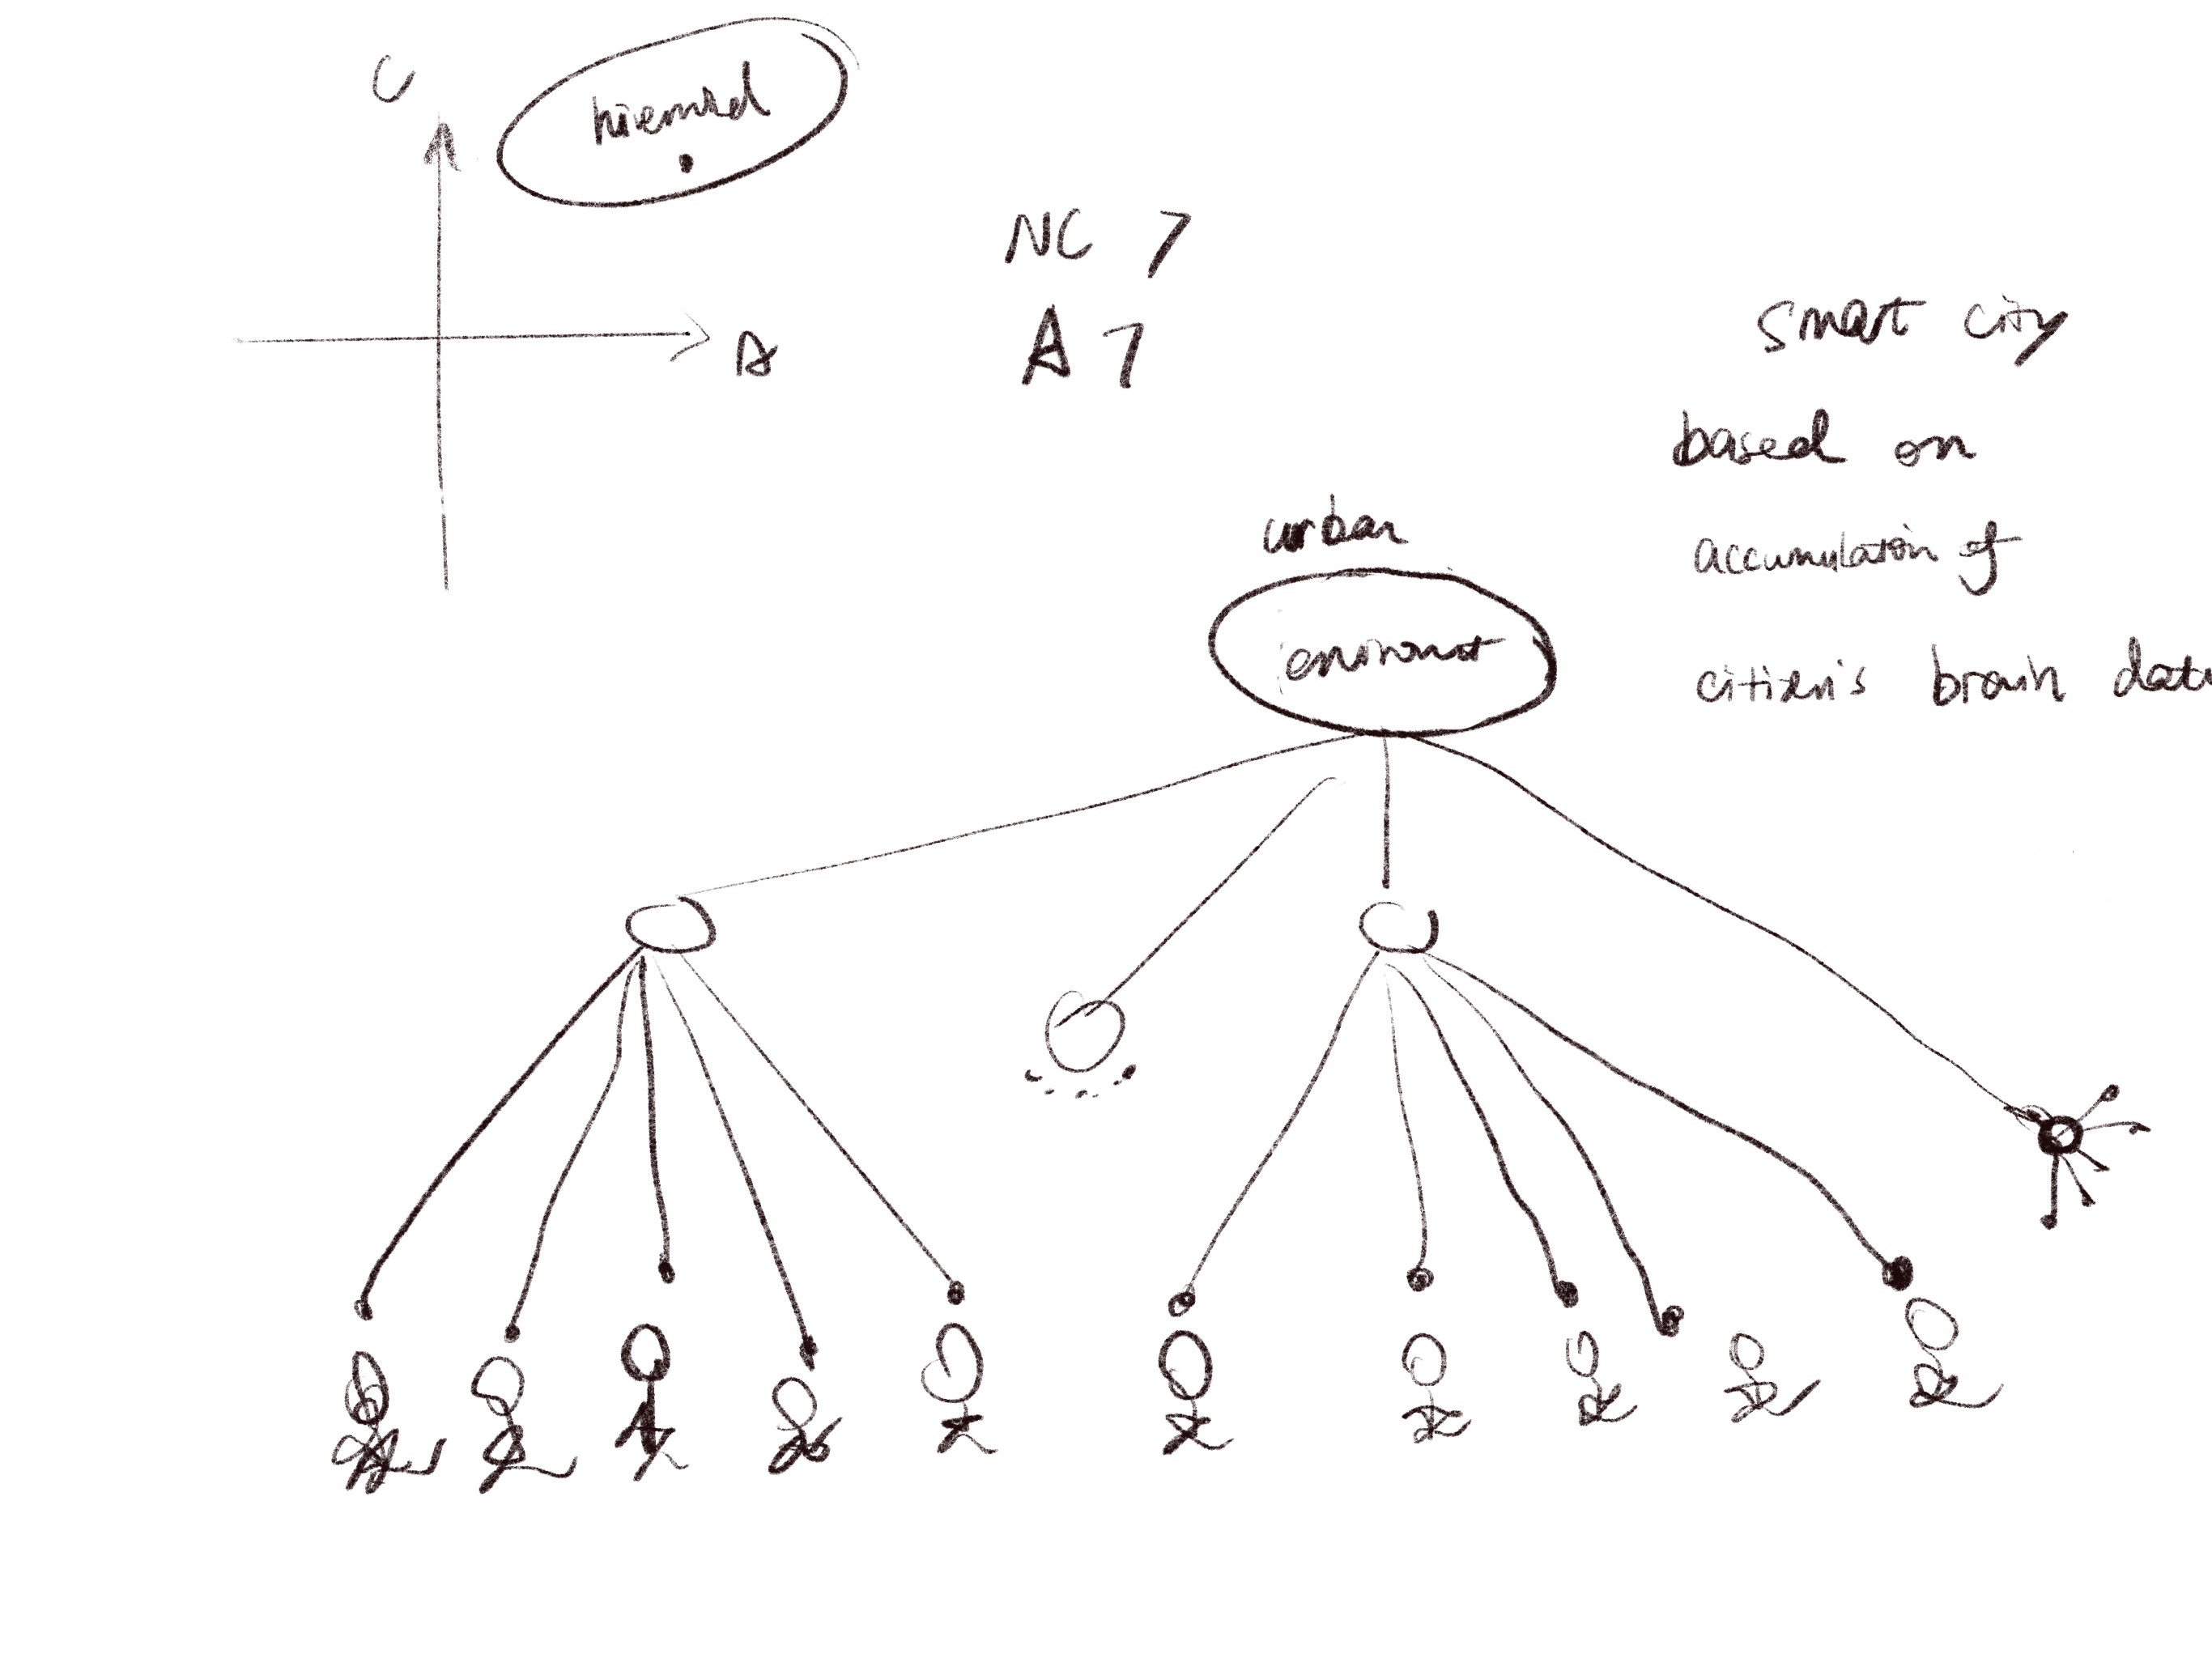 C
hivemind
A
NC 7
A 7
smart city
based on
accumulation of
citizen's brain data
urban
environmt